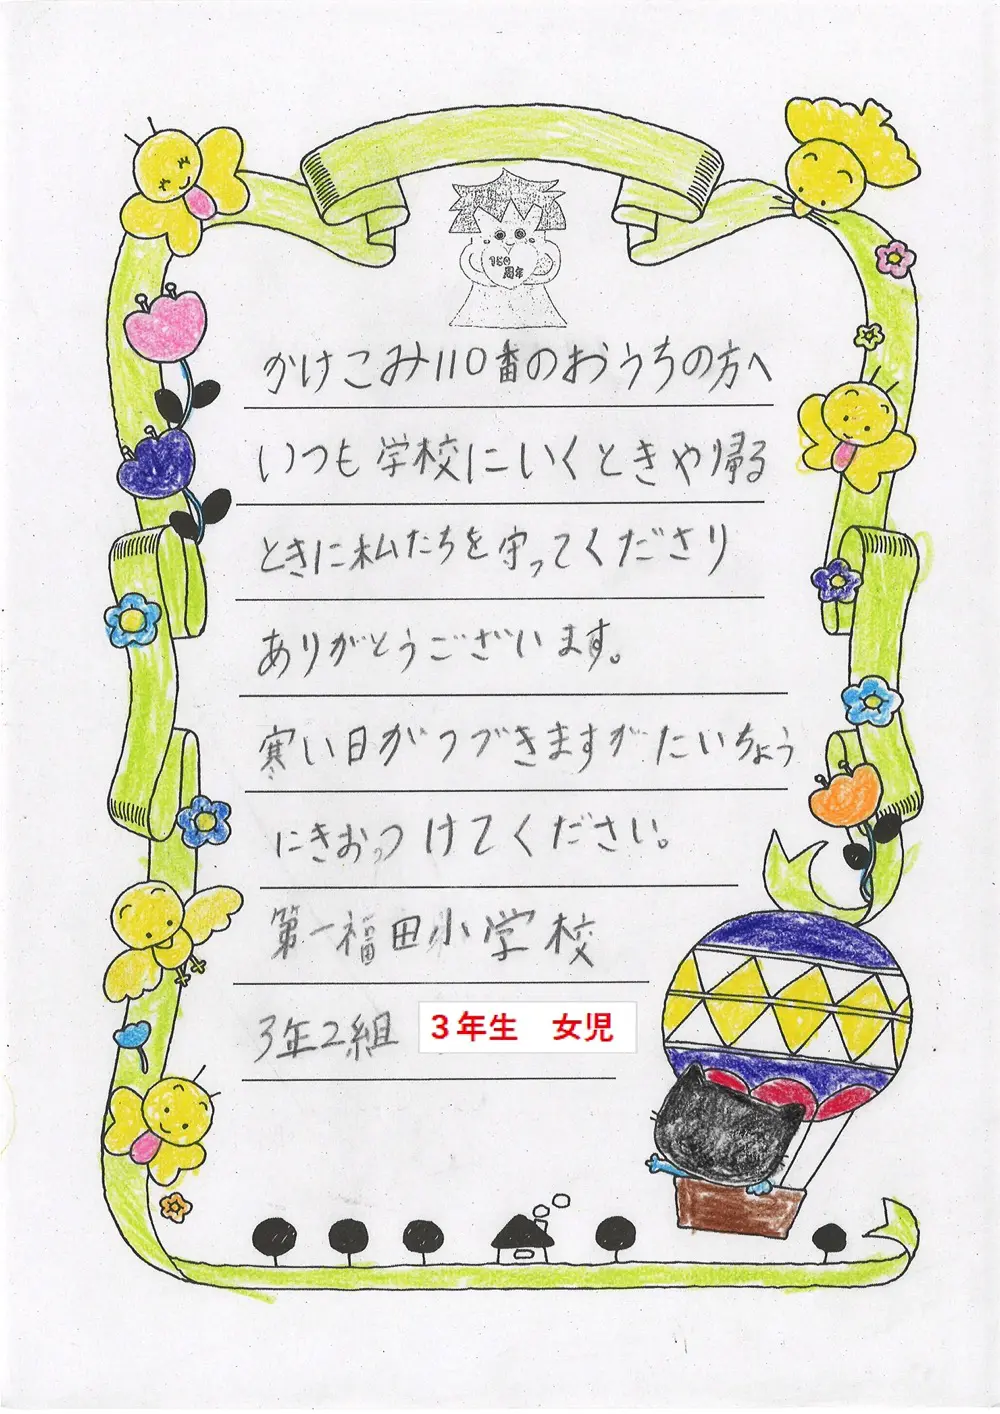 150
周年
かけこみ110番のおうちの方へ
いつも学校にいくときや帰る
ときに私たちを守ってくださり
ありがとうございます。
寒い日がつづきますがたいちょう
にきおつけてください。
第一福田小学校
3年2組 3年生 女児